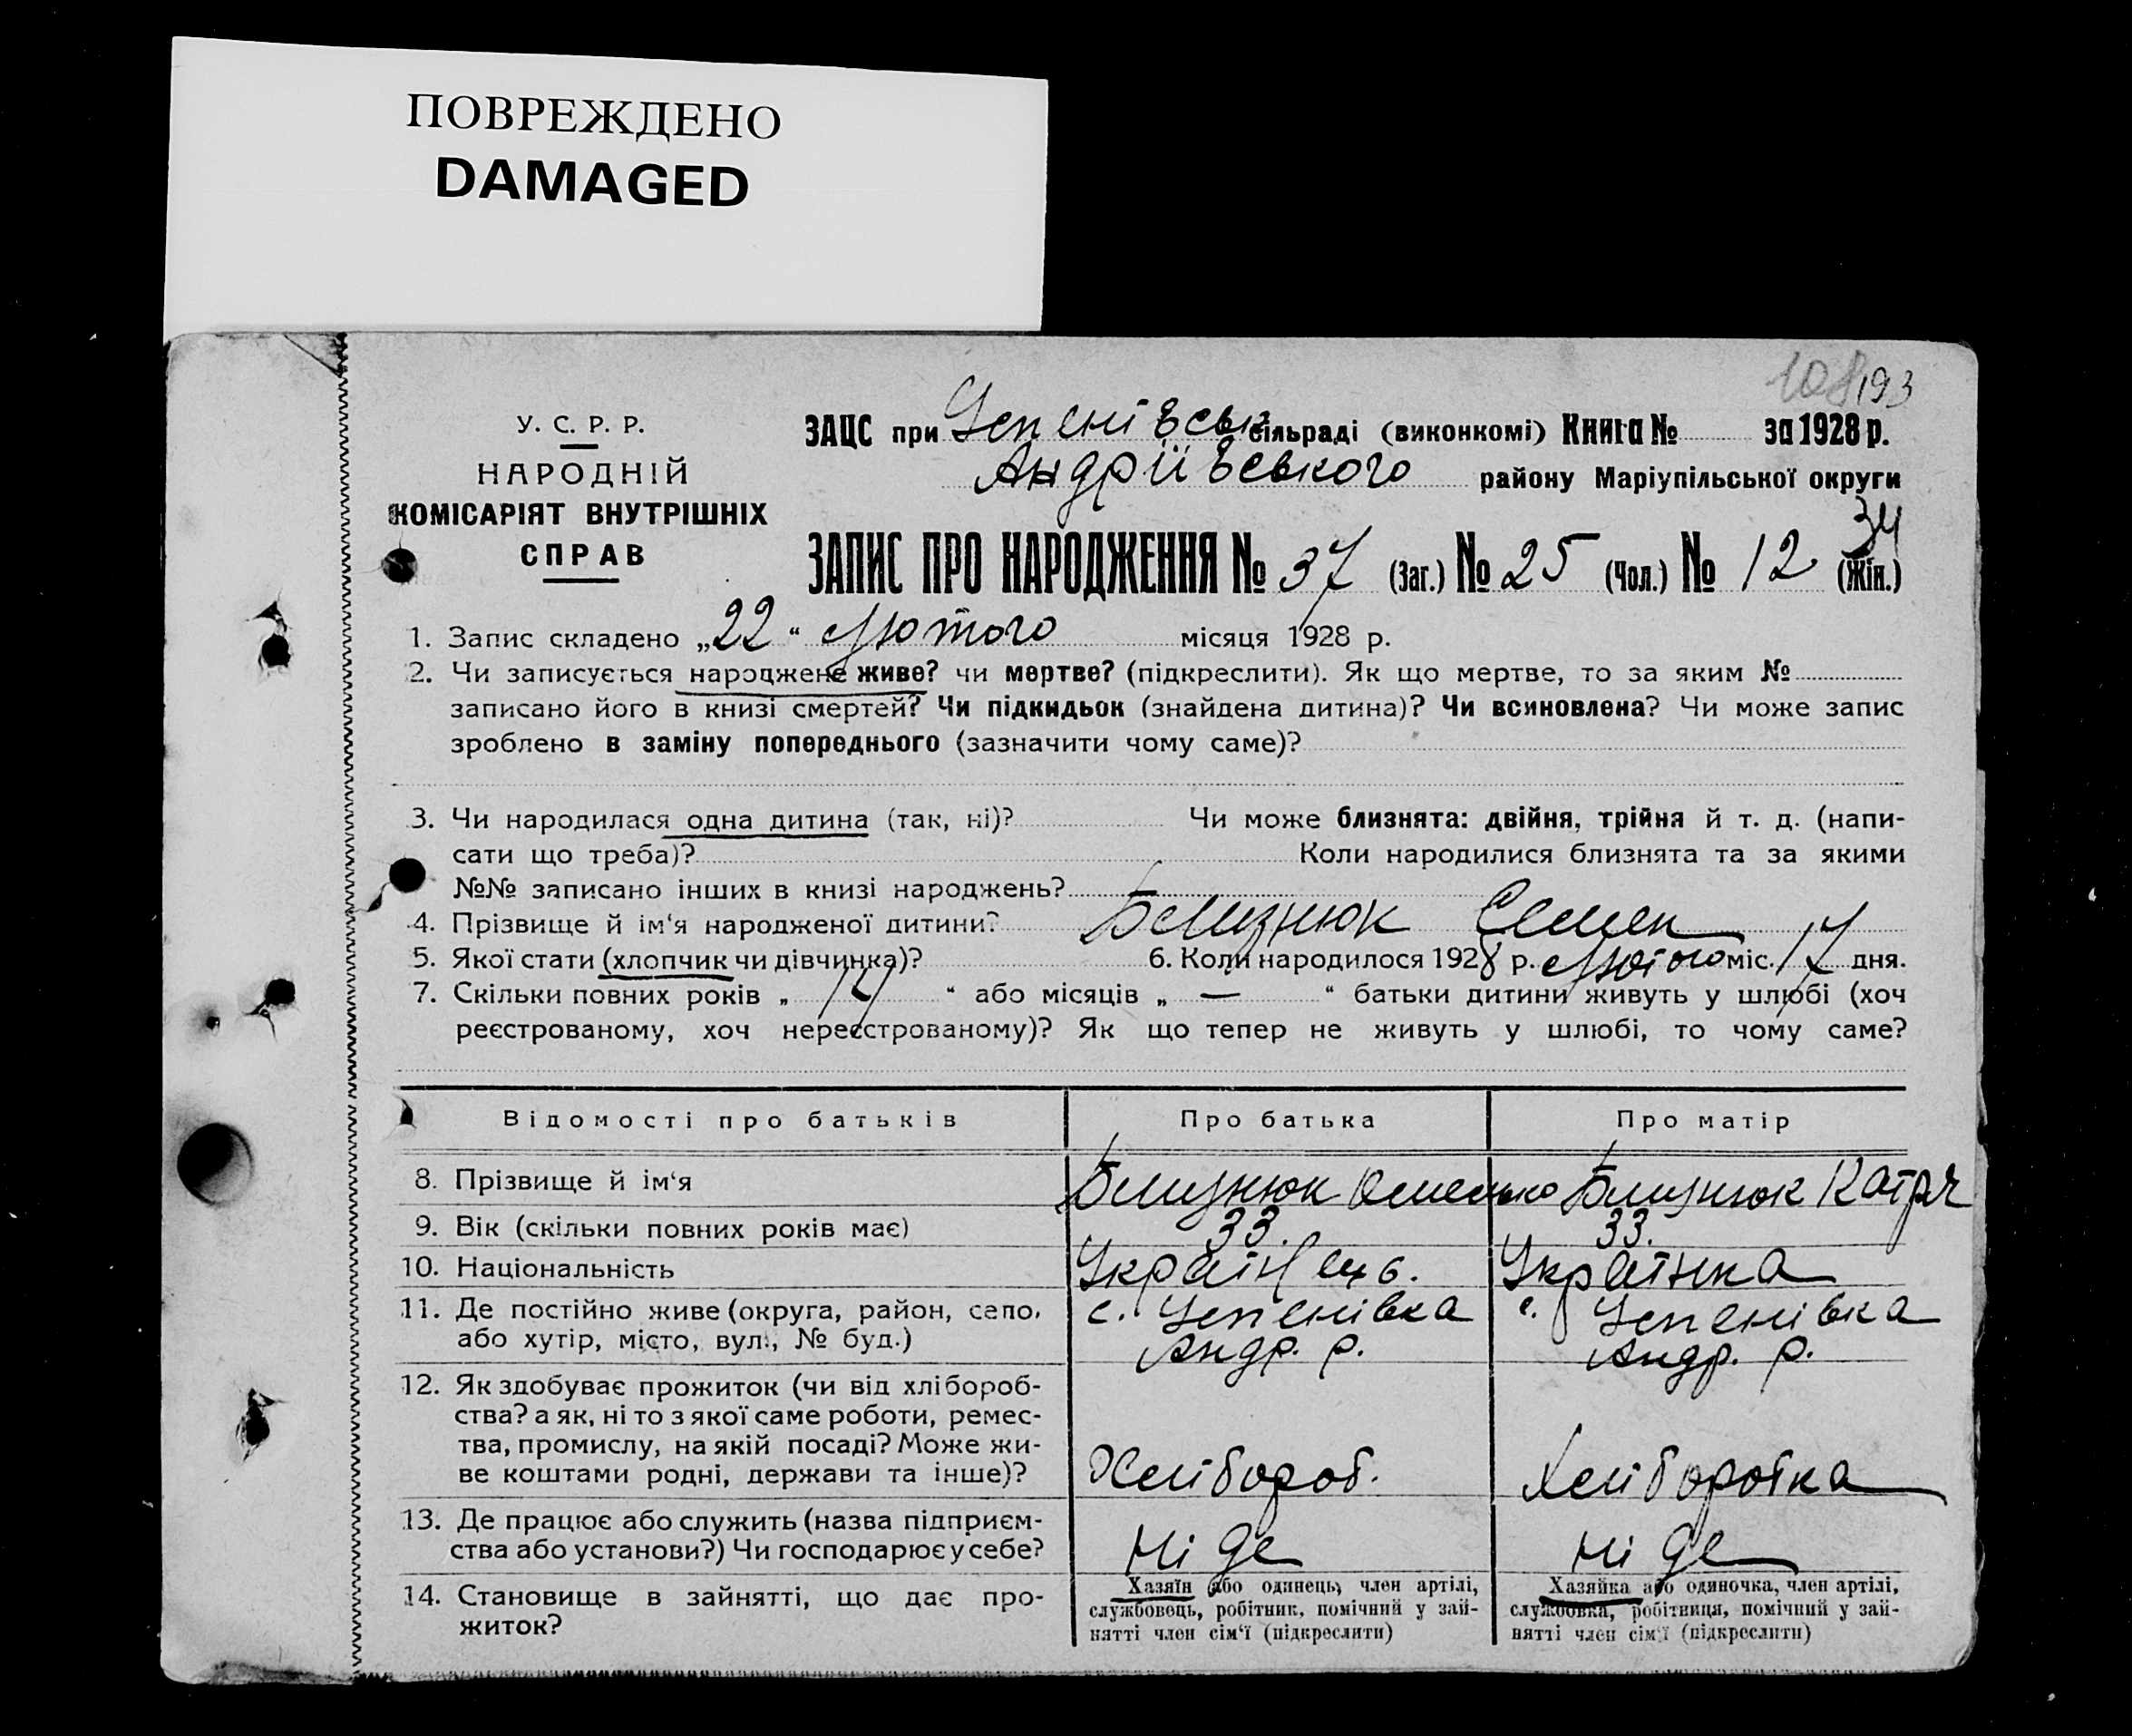 ПОВРЕЖДЕНО
DAMAGED
193
У. С. Р. Р.
НАРОДНІЙ
КОМІСАРІЯТ ВНУТРІШНІХ
СПРАВ
ЗАЦС при Успенівськ сільраді (виконкомі) Книга № за 1928 р.
Андріївського району Маріупільської округи
34
ЗАПИС ПРО НАРОДЖЕННЯ № 37 (Заг.) № 25 (Чол.) № 12 (Жін.)
1. Запис складено „22“ Лютого місяця 1928 р.
2. Чи записується народжене живе? чи мертве? (підкреслити). Як що мертве, то за яким №
записано його в книзі смертей? Чи підкидьок (знайдена дитина)? Чи всиновлена? Чи може запис
зроблено в заміну попереднього (зазначити чому саме)?
3. Чи народилася одна дитина (так, ні)? Чи може близнята: двійня, трійня й т. д. (напи-
сати що треба)? Коли народилися близнята та за якими
№№ записано інших в книзі народжень?
4. Прізвище й ім‘я народженої дитини? Близнюк Семен
5. Якої стати (хлопчик чи дівчинка)? 6. Коли народилося 1928 р. Лютого міс. 17 дня.
7. Скільки повних років „ 14 “ або місяців „ — “ батьки дитини живуть у шлюбі (хоч
реєстрованому, хоч нереєстрованому)? Як що тепер не живуть у шлюбі, то чому саме?
Відомості про батьків Про батька Про матір
8. Прізвище й ім‘я Близнюк Омелько Близнюк Катря
9. Вік (скільки повних років має) 33. 33.
10. Національність Українець. Українка
11. Де постійно живе (округа, район, село, с. Успенівка с. Успенівка
або хутір, місто, вул., № буд.) Андр. р. Андр. р.
12. Як здобуває прожиток (чи від хлібороб-
ства? а як, ні то з якої саме роботи, ремес-
тва, промислу, на якій посаді? Може жи-
ве коштами родні, держави та інше)? Хлібороб. Хліборобка
13. Де працює або служить (назва підприєм-
ства або установи?) Чи господарює у себе? Ні де Ні де
14. Становище в зайнятті, що дає про-
житок?
Хазяїн або одинець, член артілі,
службовець, робітник, помічний у зай-
нятті член сім‘ї (підкреслити)
Хазяйка або одиночка, член артілі,
службовка, робітниця, помічний у зай-
нятті член сім‘ї (підкреслити)